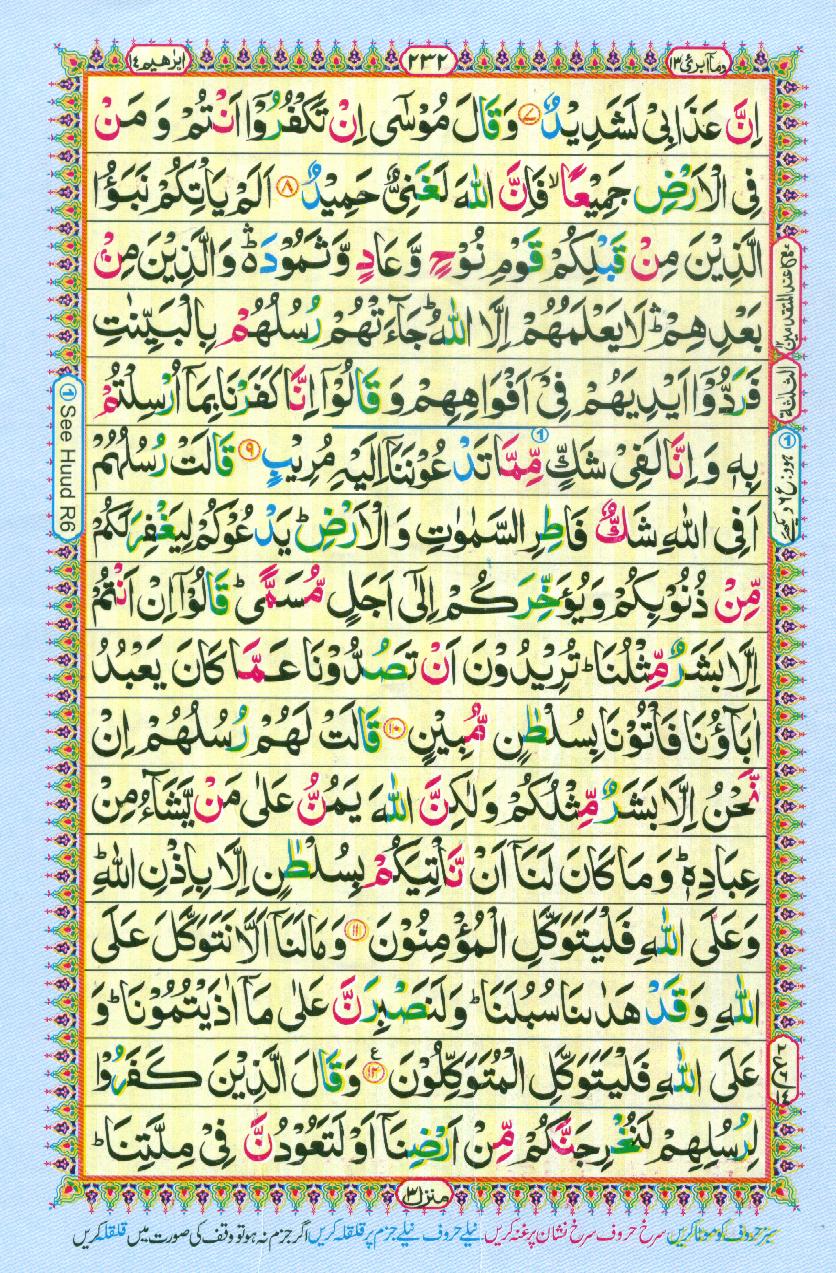 وما ابرئ ١٣
٢٣٢
ابرٰهيم ١٤
اِنَّ عَذَابِىْ لَشَدِيْدٌ ۷ وَقَالَ مُوْسٰٓى اِنْ تَكْفُرُوْۤا اَنْتُمْ وَ مَنْ
فِى الْاَرْضِ جَمِيْعًا ۙ فَاِنَّ اللّٰهَ لَغَنِىٌّ حَمِيْدٌ ۸ اَلَمْ يَاْتِكُمْ نَبَؤُا
الَّذِيْنَ مِنْ قَبْلِكُمْ قَوْمِ نُوْحٍ وَّعَادٍ وَّثَمُوْدَ ۛؕ وَالَّذِيْنَ مِنْۢ
بَعْدِهِمْ ۛؕ لَا يَعْلَمُهُمْ اِلَّا اللّٰهُ ؕ جَآءَتْهُمْ رُسُلُهُمْ بِالْبَيِّنٰتِ
فَرَدُّوْۤا اَيْدِيَهُمْ فِىْۤ اَفْوَاهِهِمْ وَقَالُوْۤا اِنَّا كَفَرْنَا بِمَاۤ اُرْسِلْتُمْ
بِهٖ وَاِنَّا لَفِىْ شَكٍّ مِّمَّا تَدْعُوْنَنَاۤ اِلَيْهِ مُرِيْبٍ ۹ قَالَتْ رُسُلُهُمْ
اَفِى اللّٰهِ شَكٌّ فَاطِرِ السَّمٰوٰتِ وَالْاَرْضِ ؕ يَدْعُوْكُمْ لِيَغْفِرَ لَكُمْ
مِّنْ ذُنُوْبِكُمْ وَيُؤَخِّرَكُمْ اِلٰٓى اَجَلٍ مُّسَمًّى ؕ قَالُوْۤا اِنْ اَنْتُمْ
اِلَّا بَشَرٌ مِّثْلُنَا ؕ تُرِيْدُوْنَ اَنْ تَصُدُّوْنَا عَمَّا كَانَ يَعْبُدُ
اٰبَآؤُنَا فَاْتُوْنَا بِسُلْطٰنٍ مُّبِيْنٍ ۱۰ قَالَتْ لَهُمْ رُسُلُهُمْ اِنْ
نَّحْنُ اِلَّا بَشَرٌ مِّثْلُكُمْ وَلٰكِنَّ اللّٰهَ يَمُنُّ عَلٰى مَنْ يَّشَآءُ مِنْ
عِبَادِهٖ ؕ وَمَا كَانَ لَنَاۤ اَنْ نَّاْتِيَكُمْ بِسُلْطٰنٍ اِلَّا بِاِذْنِ اللّٰهِ ؕ
وَعَلَى اللّٰهِ فَلْيَتَوَكَّلِ الْمُؤْمِنُوْنَ ۱۱ وَمَا لَنَاۤ اَلَّا نَتَوَكَّلَ عَلَى
اللّٰهِ وَقَدْ هَدٰٮنَا سُبُلَنَا ؕ وَلَنَصْبِرَنَّ عَلٰى مَاۤ اٰذَيْتُمُوْنَا ؕ وَ
عَلَى اللّٰهِ فَلْيَتَوَكَّلِ الْمُتَوَكِّلُوْنَ ۱۲ ع وَقَالَ الَّذِيْنَ كَفَرُوْا
لِرُسُلِهِمْ لَنُخْرِجَنَّكُمْ مِّنْ اَرْضِنَاۤ اَوْ لَتَعُوْدُنَّ فِىْ مِلَّتِنَا ؕ
① See Huud R6
منزل ۳
سبز حروف کو موٹا کریں سرخ حروف سرخ نشان پر غنہ کریں۔ نیلے حروف نیلے جزم پر قلقلہ کریں اگر جزم نہ ہو تو وقف کی صورت میں قلقلہ کریں